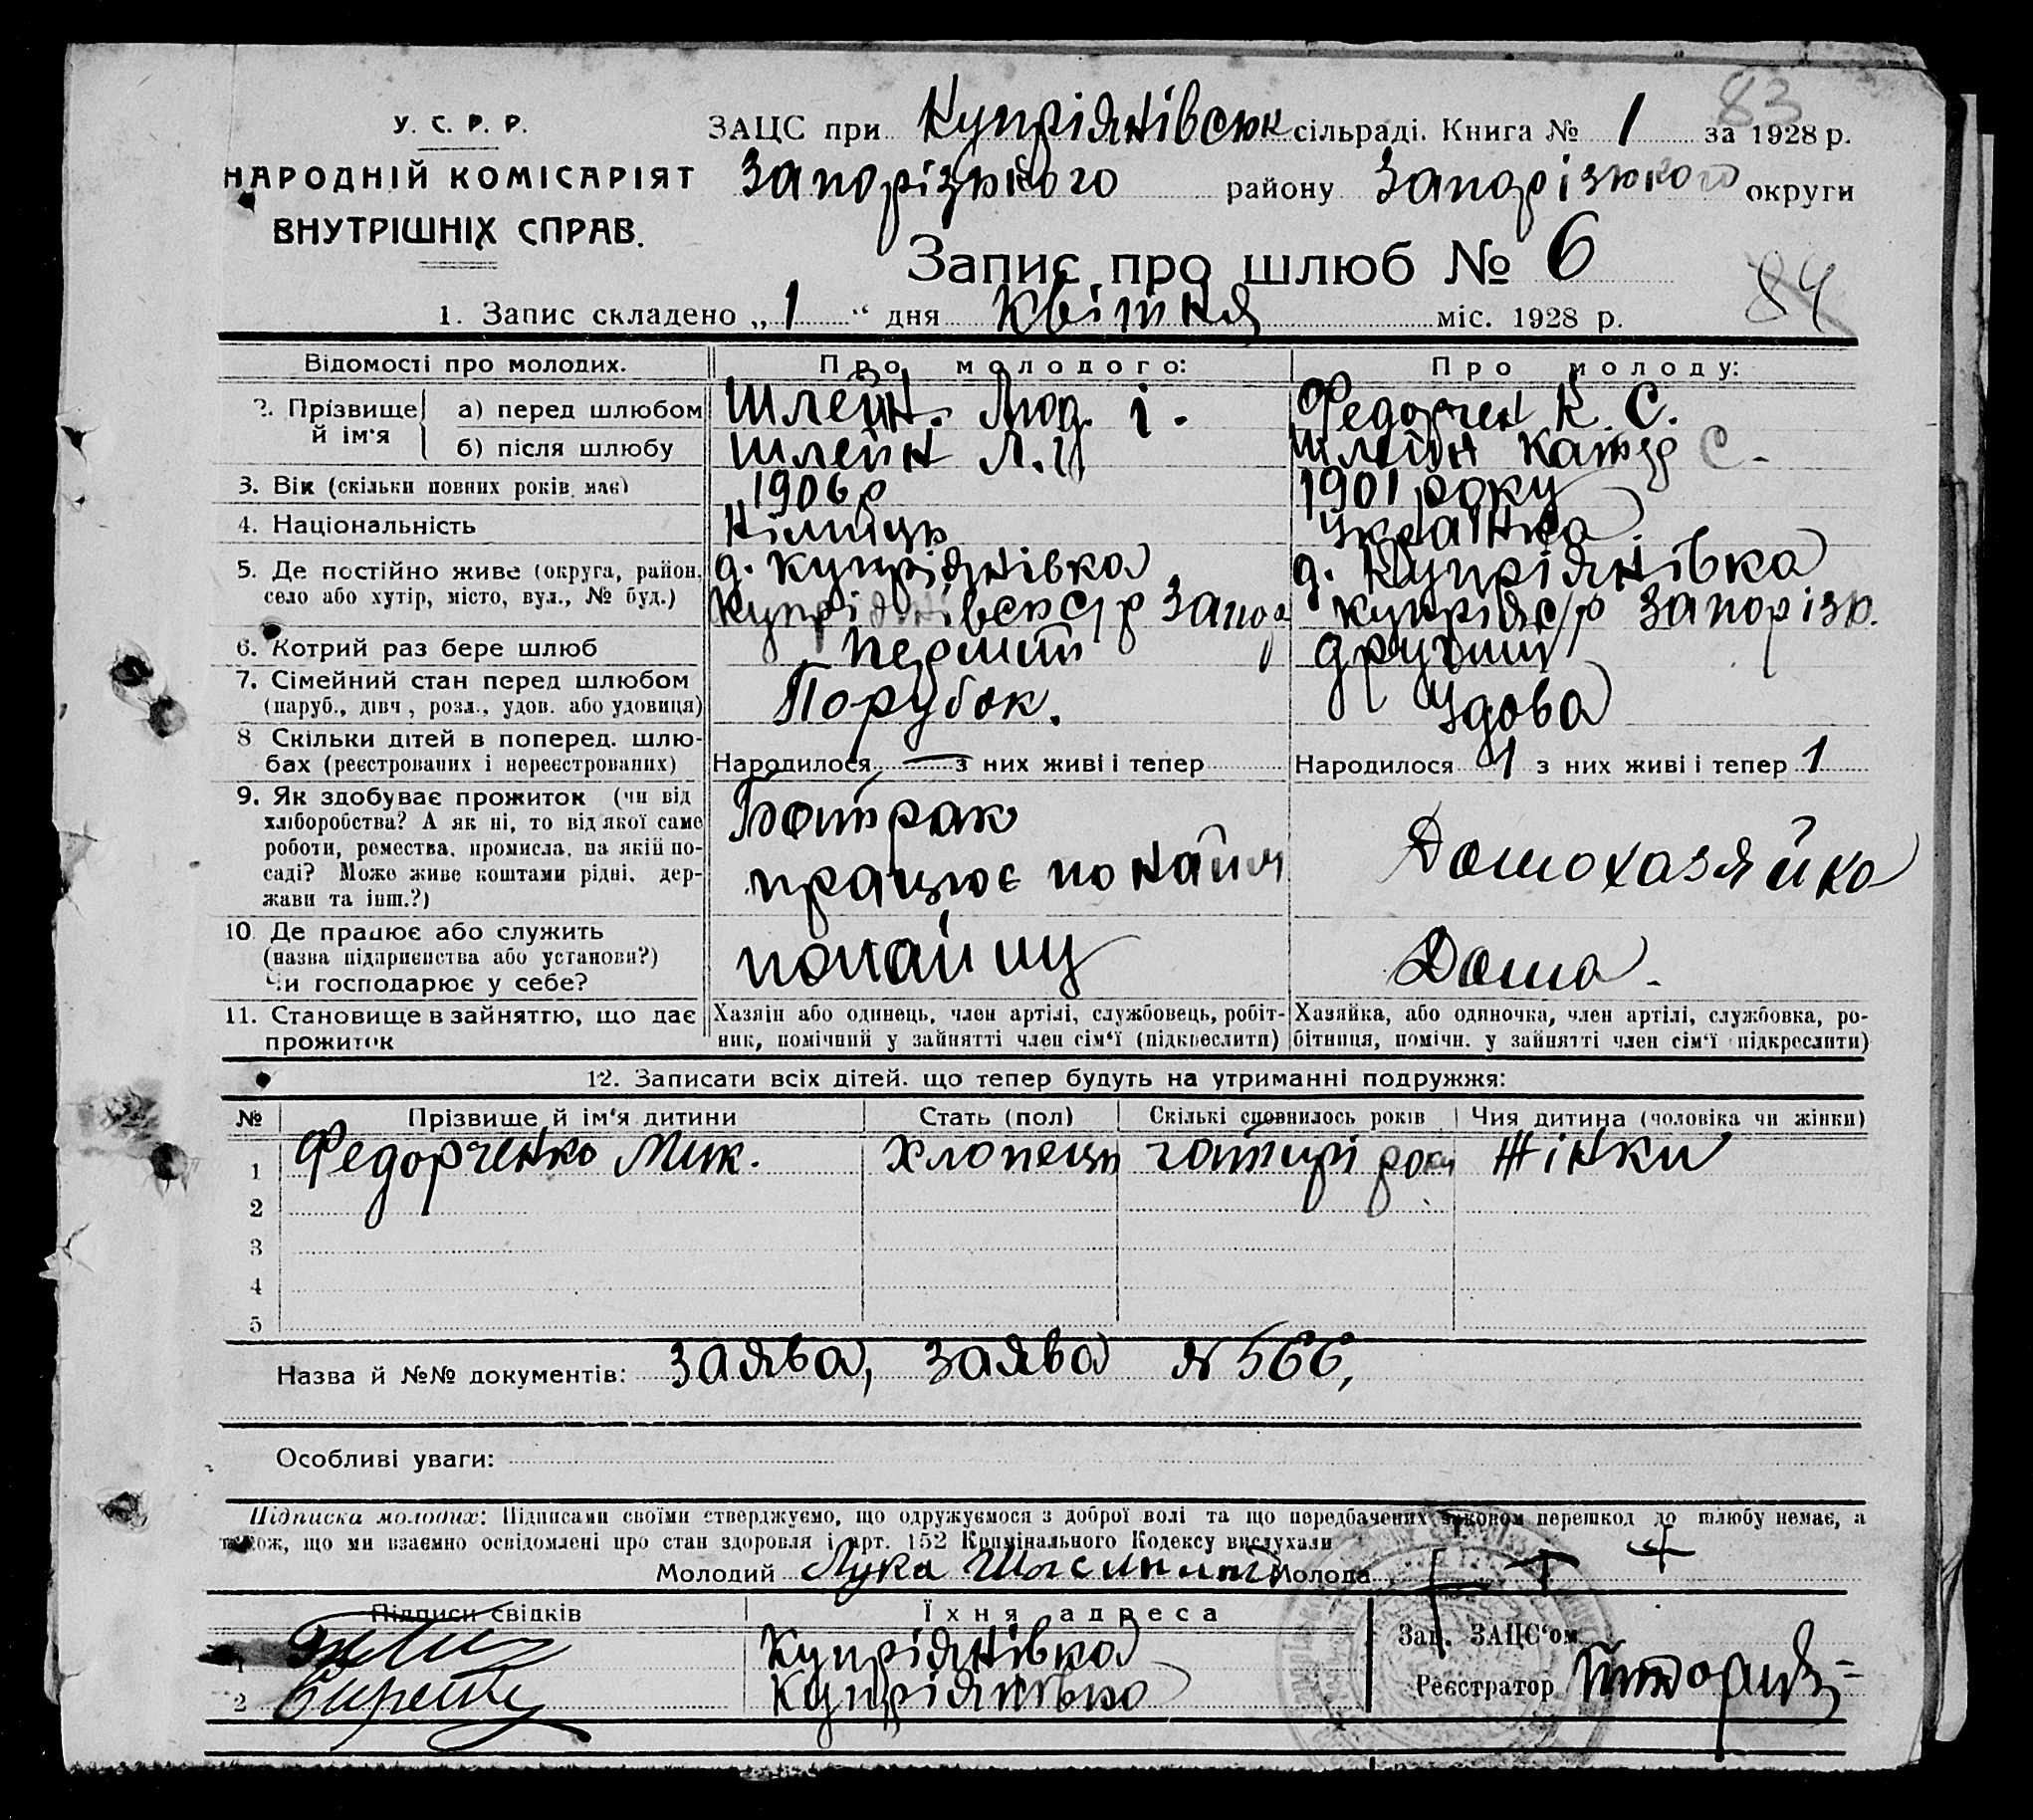 83
У. С. Р. Р.
НАРОДНІЙ КОМІСАРІЯТ
ВНУТРІШНІХ СПРАВ.
ЗАЦС при Купріянівськ сільраді. Книга № 1 за 1928 р.
Запорізького району Запорізького округи
Запис про шлюб № 6
84
1. Запис складено „ 1 “ дня Квітня міс. 1928 р.
Відомості про молодих. Про молодого: Про молоду:
2. Прізвище й ім'я а) перед шлюбом Шлейн. І. Федорчен К. С.
б) після шлюбу Шлейн Л. И Шлейн Катер С.
3. Вік (скільки повних років має) 1906 р 1901 року
4. Національність Німець Українка
5. Де постійно живе (округа, район, д. Купріянівка д. Купріянівка
село або хутір, місто, вул., № буд.) Купріянівск с/р Запор Купріян с/р Запорізь.
6. Котрий раз бере шлюб Перший другий
7. Сімейний стан перед шлюбом
(паруб., дівч., розл., удов. або удовиця) Порубок. Удова
8 Скільки дітей в поперед. шлю-
бах (реєстрованих і нереєстрованих) Народилося — з них живі і тепер Народилося 1 з них живі і тепер 1
9. Як здобуває прожиток (чи від
хліборобства? А як ні, то від якої саме
роботи, ремества, промисла, на якій по-
саді? Може живе коштами рідні, дер-
жави та інш.?)
Батрак
працює по найм
Домохазяйка
10. Де працює або служить
(назва підприємства або установи?)
Чи господарює у себе?
понайму Дома.
11. Становище в зайняттю, що дає
прожиток
Хазяїн або одинець, член артілі, службовець, робіт-
ник, помічний у зайнятті член сім'ї (підкреслити)
Хазяйка, або одиночка, член артілі, службовка, ро-
бітниця, помічн. у зайнятті член сім'ї підкреслити)
12. Записати всіх дітей, що тепер будуть на утриманні подружжя:
№ Прізвище й ім'я дитини Стать (пол) Скількі сповнилось років Чия дитина (чоловіка чи жінки)
1 Федорченко Мик. Хлопець чотирі роки Жінки
2
3
4
5
Назва й №№ документів: заява, заява № 566,
Особливі уваги:
Підписка молодих: Підписами своїми стверджуємо, що одружуємося з доброї волі та що передбачених законом перешкод до шлюбу немає, а
також, що ми взаємно освідомлені про стан здоровля і арт. 152 Кримінального Кодексу вислухали
Молодий Лука Молода + + +
Підписи свідків Їхня адреса
1 Купріянівка
2 Купріянівка
Зав. ЗАЦС'ом
Реєстратор